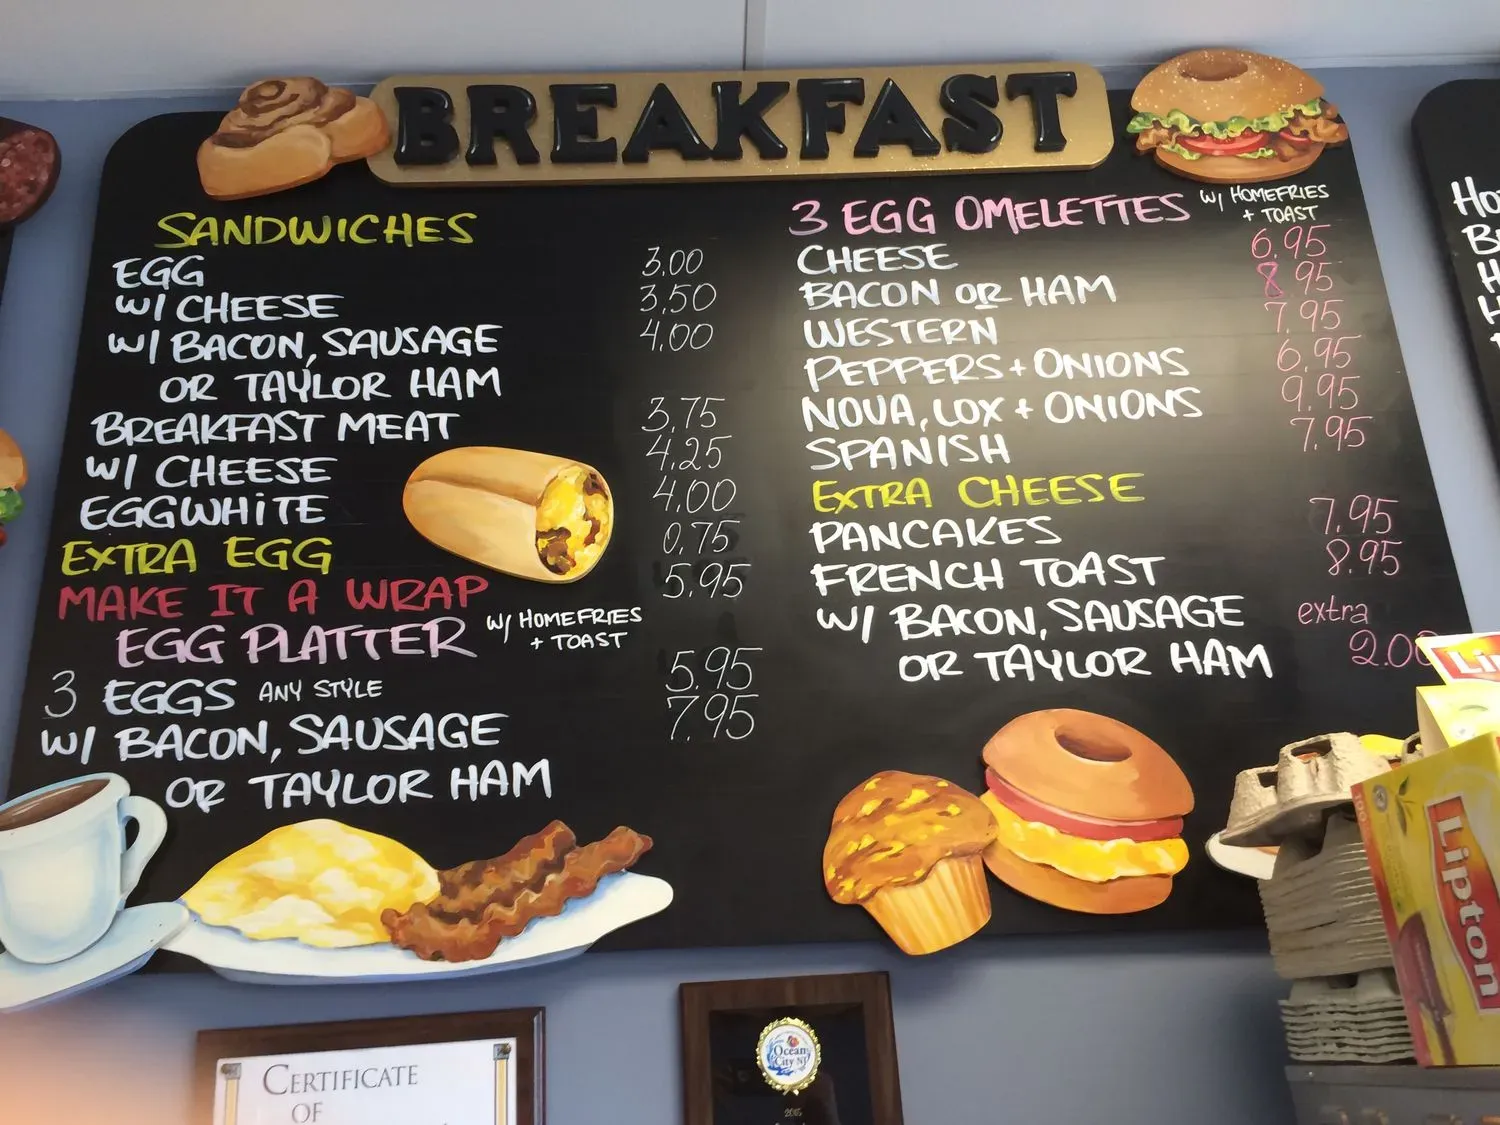 BREAKFAST
SANDWICHES
EGG 3.00
W/ CHEESE 3.50
W/ BACON, SAUSAGE 4.00
OR TAYLOR HAM
BREAKFAST MEAT 3.75
W/ CHEESE 4.25
EGGWHITE 4.00
EXTRA EGG 0.75
MAKE IT A WRAP 5.95
EGG PLATTER W/ HOMEFRIES
+ TOAST
3 EGGS ANY STYLE 5.95
W/ BACON, SAUSAGE 7.95
OR TAYLOR HAM
3 EGG OMELETTES W/ HOMEFRIES
+ TOAST
CHEESE 6.95
BACON OR HAM 8.95
WESTERN 7.95
PEPPERS + ONIONS 6.95
NOVA, LOX + ONIONS 9.95
SPANISH 7.95
EXTRA CHEESE
PANCAKES 7.95
FRENCH TOAST 8.95
W/ BACON, SAUSAGE extra
OR TAYLOR HAM 2.00
Lipton
CERTIFICATE
OF
Ocean
City NJ